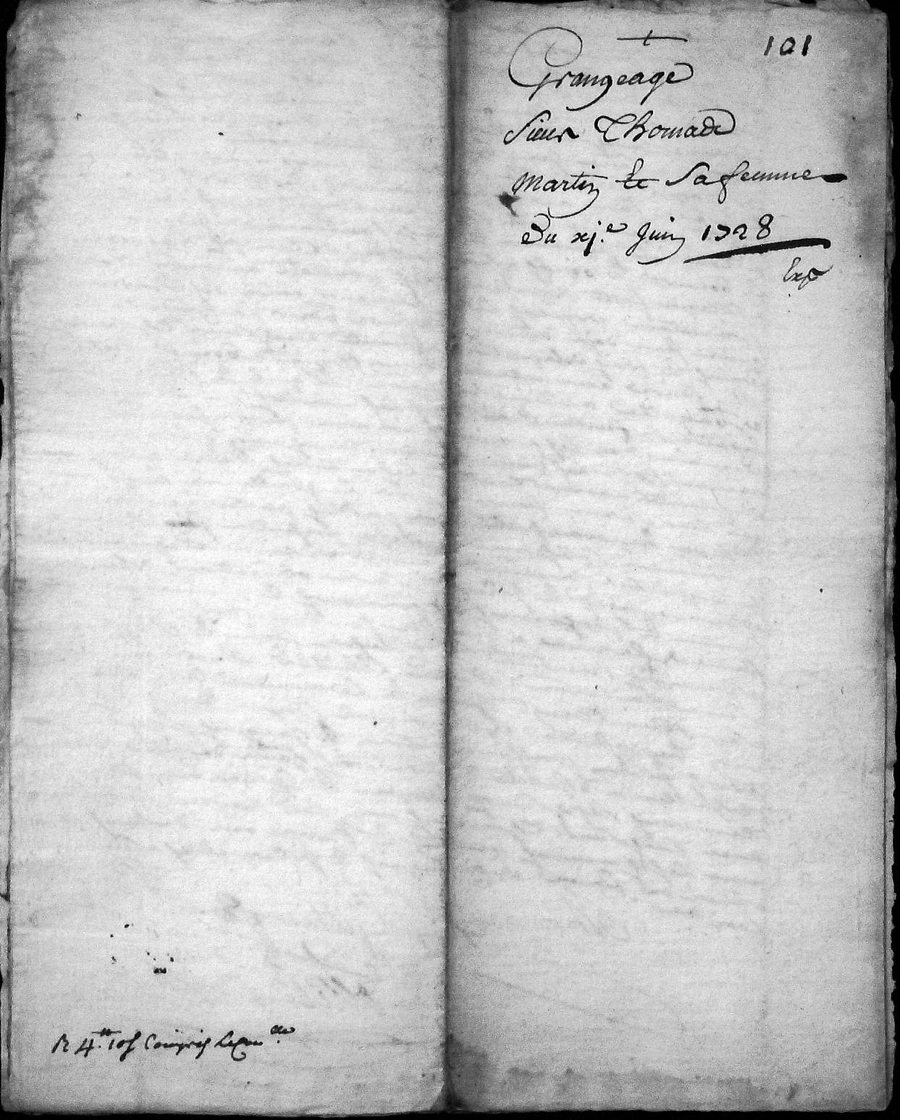 101
Grangeage
Sieur Thomas
Martin et Sa femme
Du xj.e Juin 1728
Exp
R 4.tt 10s Compris